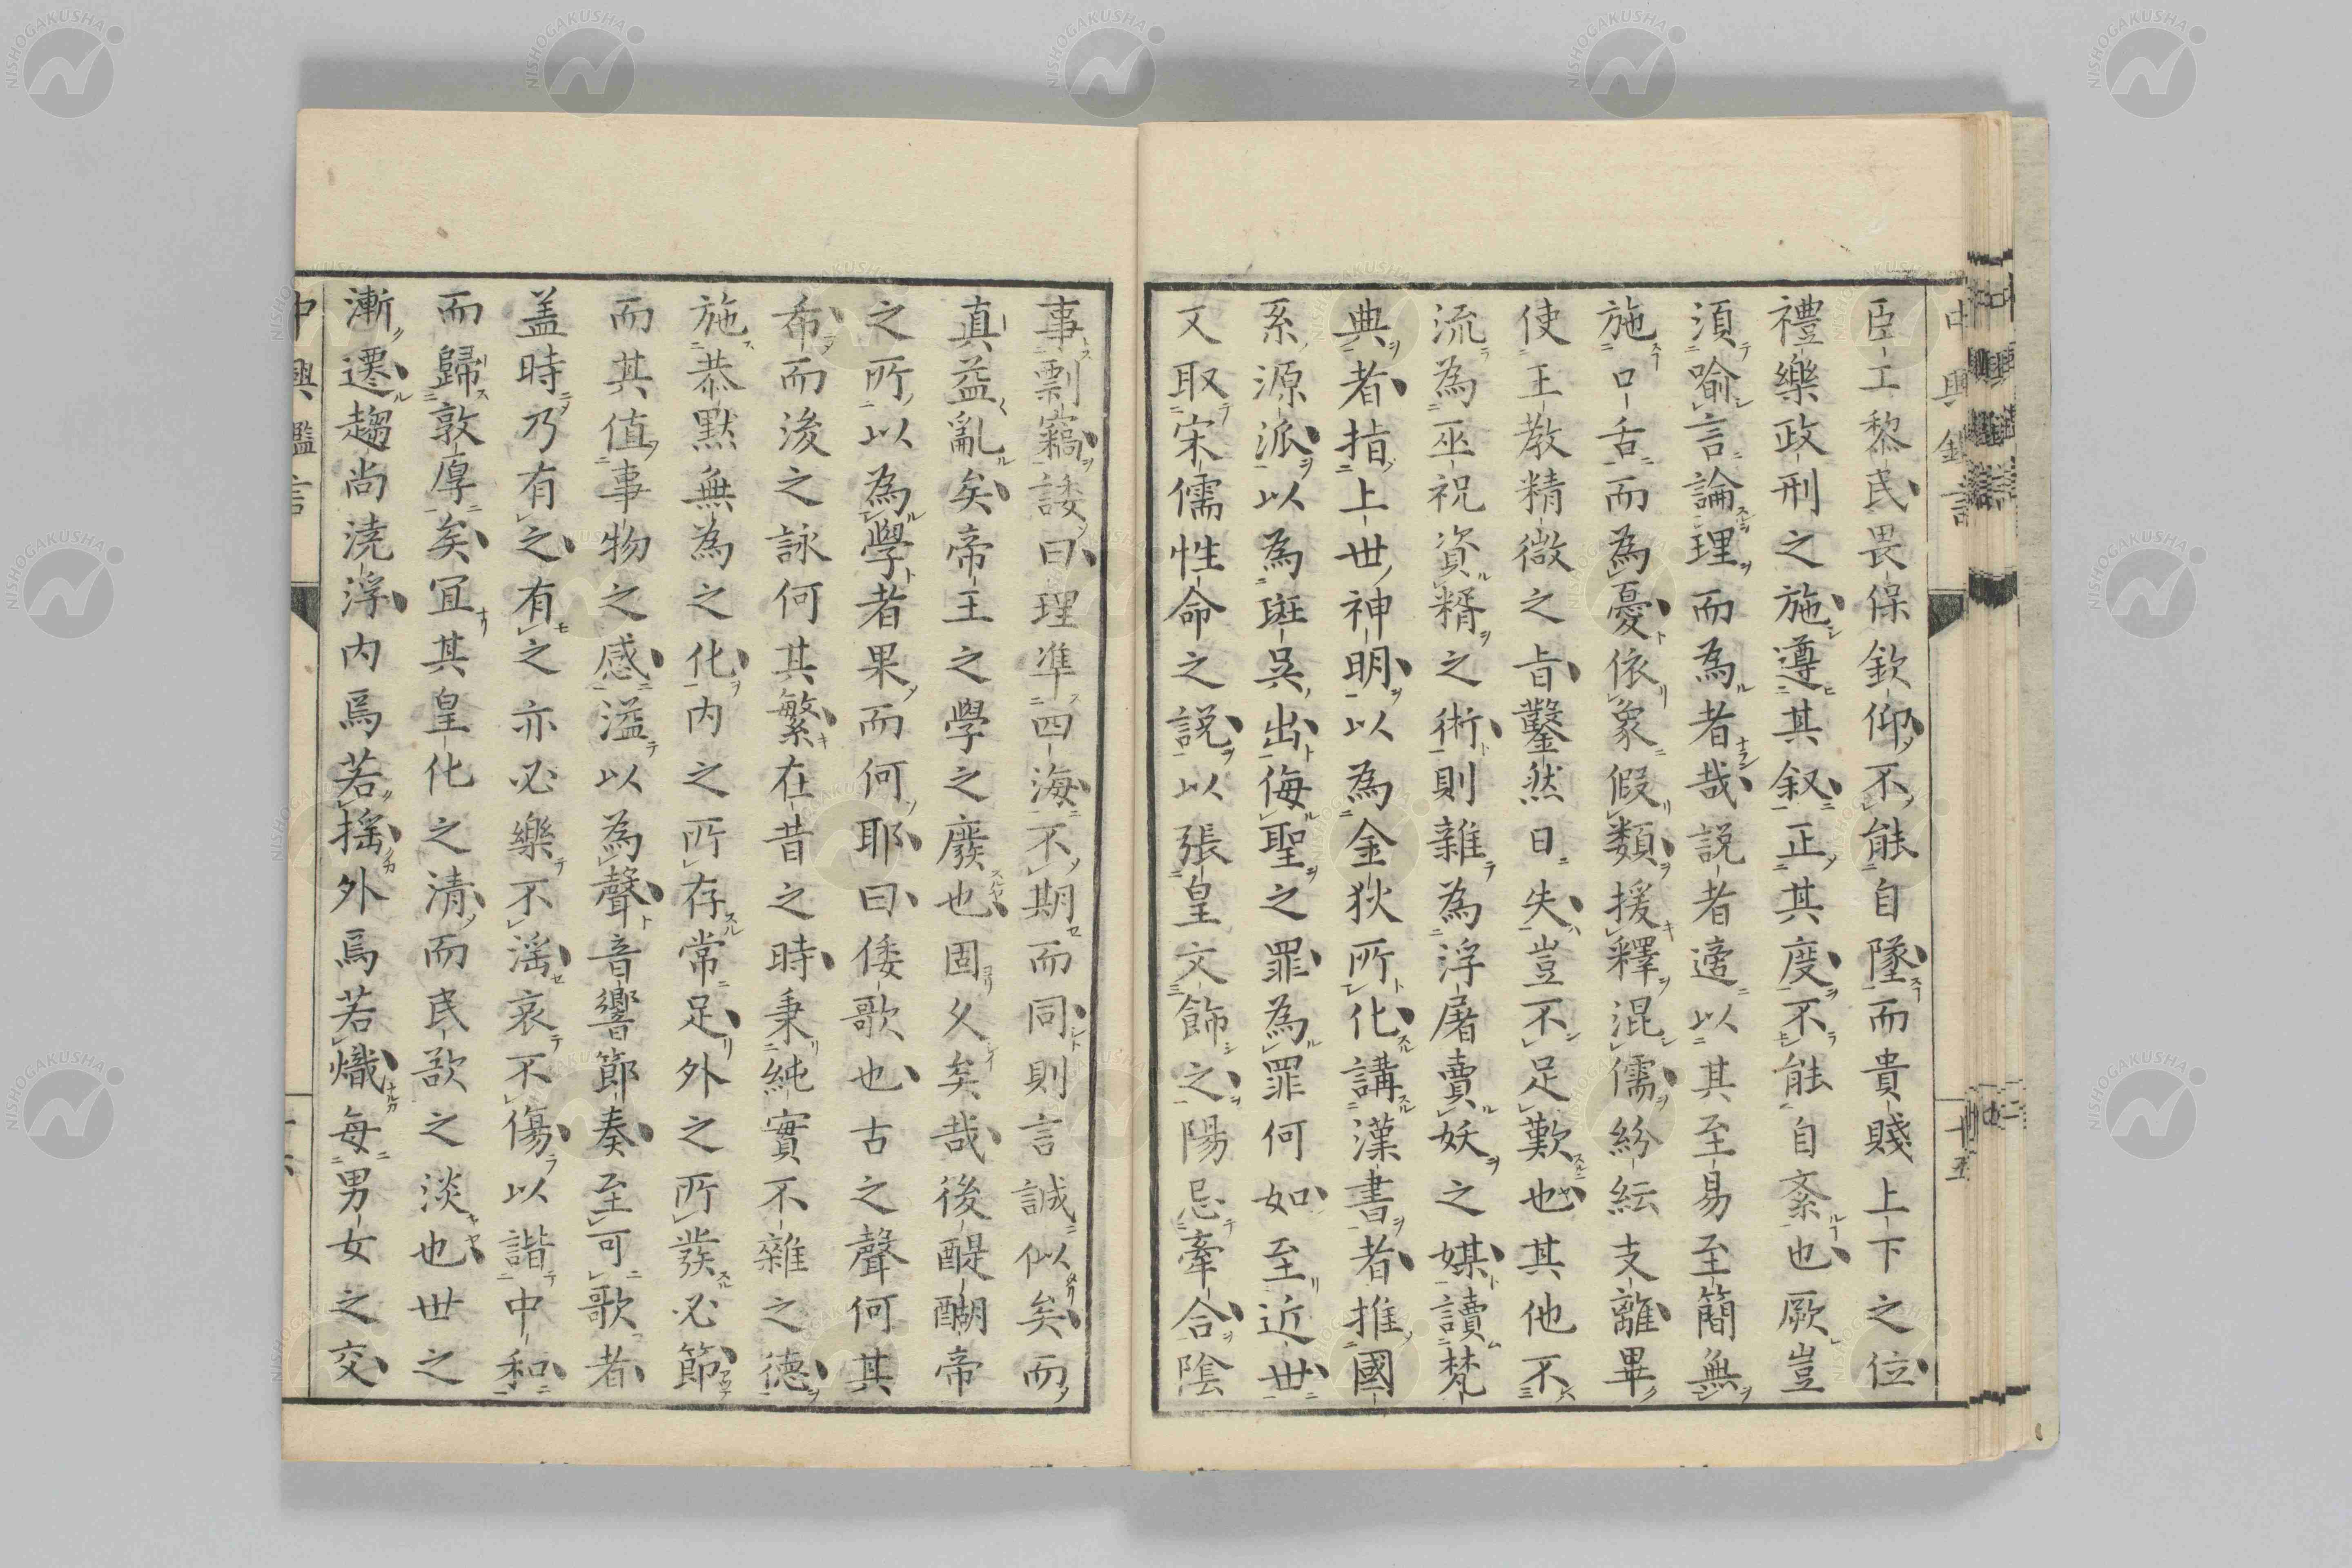 臣工黎民畏保欽仰不能自墜而貴賤上下之位
禮樂政刑之施遵其叙正其度不能自紊也厥豈
須喻言論理而為者哉説者適以其至易至簡無
施口舌而為憂依象假類援釋混儒紛紜支離畢
使王教精微之旨鑿然日失豈不足歎也其他不
流為巫祝資糈之術則雜為浮屠賣妖之媒讀梵
典者指上世神明以為金狄所化講漢書者推國
系源派以為斑吳出侮聖之罪為罪何如至近世
又取宋儒性命之説以張皇文飾之陽忌牽合陰
事剽竊諉曰理準四海不期而同則言誠似矣而
真益亂矣帝王之學之廢也固久矣哉後醍醐帝
之所以為學者果而何耶曰倭歌也古之聲何其
希而後之詠何其繁在昔之時秉純實不雜之德
施恭默無為之化内之所存常足外之所發必節
而其值事物之感溢以為聲音響節奏至可歌者
盖時乃有之有之亦必樂不滛哀不傷以諧中和
而歸敦厚矣冝其皇化之清而民歆之淡也世之
漸遷趨尚澆浮内焉若搖外焉若熾毎男女之交
中興鑑言
十五